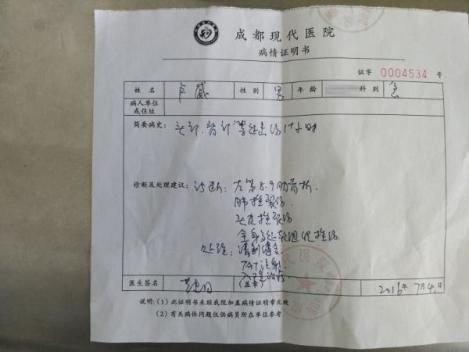 成都现代医院
病情证明书
证字 0004534 号
姓名 卢威 性别 男 年龄 科别 急
病人单位
或住址
简要病史: 头部、背部等处击伤1小时
诊断及处理建议: 诊断: 左第8.9肋骨折
肺挫裂伤
头皮挫裂伤
全身多处软组织挫伤
处理: 清创缝合
TAT注射
医生签名 (盖章) 2016年7月4日
说明:(1)此证明书未经我院加盖病情证明章无效
(2)有关病休问题仅供病员所在单位参考